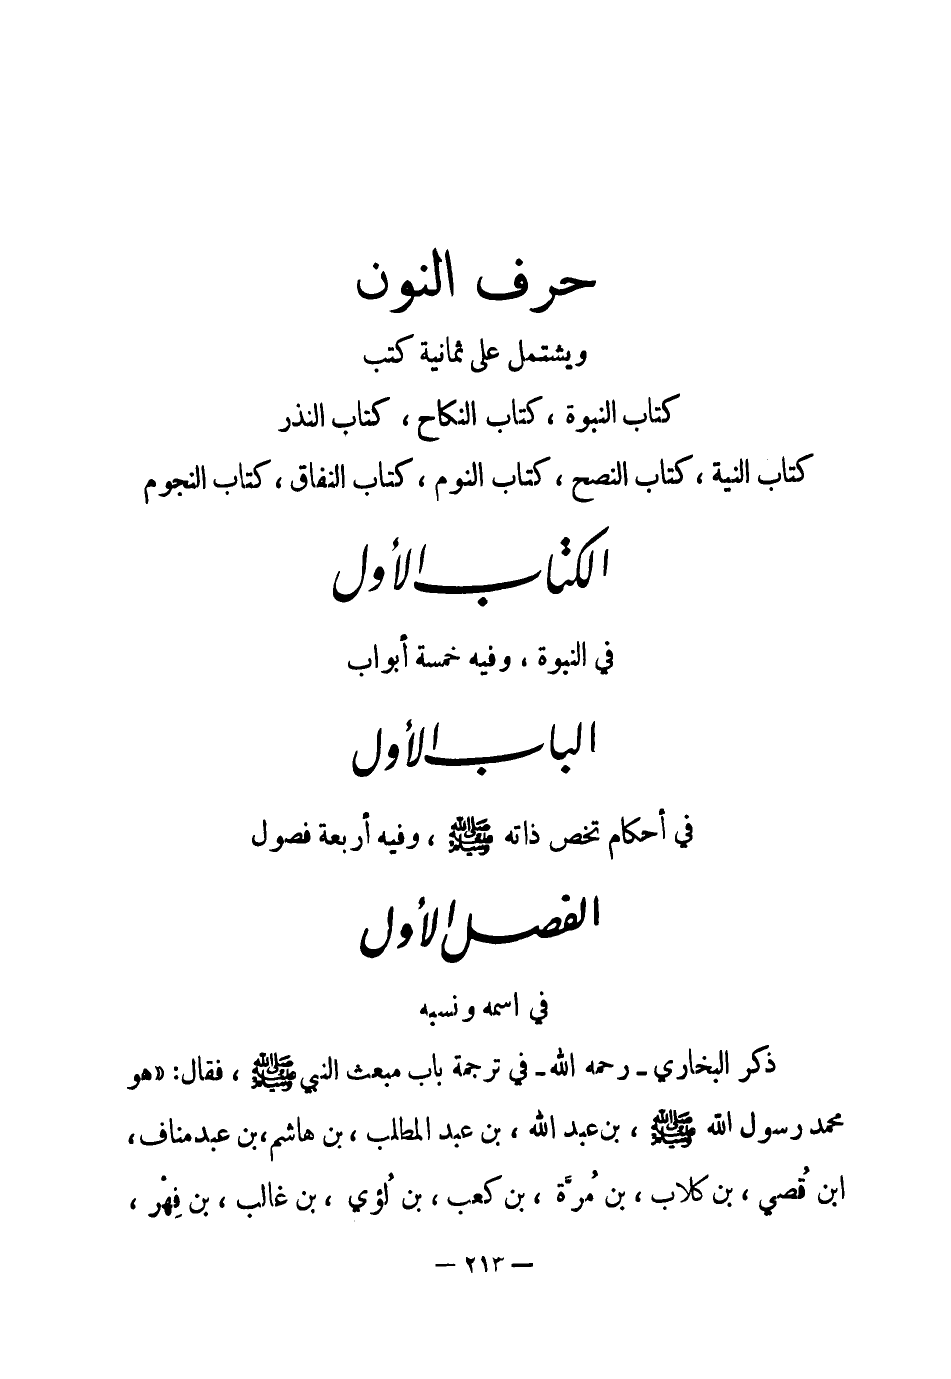 حرف النون
ويشتمل على ثمانية كتب
كتاب النبوة ، كتاب النكاح ، كتاب النذر
كتاب النية ، كتاب النصح ، كتاب النوم ، كتاب النفاق ، كتاب النجوم
الكتاب الأول
في النبوة ، وفيه خمسة أبواب
الباب الأول
في أحكام تخص ذاته ﷺ ، وفيه أربعة فصول
الفصل الأول
في اسمه ونسبه
ذكر البخاري ـ رحمه الله ـ في ترجمة باب مبعث النبي ﷺ ، فقال: «هو
محمد رسول الله ﷺ ، بن عبد الله ، بن عبد المطلب ، بن هاشم ، بن عبد مناف ،
ابن قُصي ، بن كلاب ، بن مُرَّة ، بن كعب ، بن لُؤي ، بن غالب ، بن فِهْر ،
— ٢١٣ —